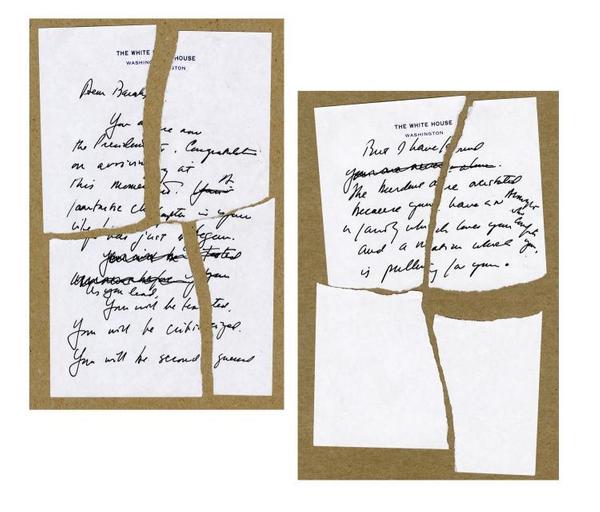 THE WHITE HOUSE
WASHINGTON
Dear Barack,
You are now
the President. Congratulations
on arriving at
this moment. A
fantastic chapter in your
life has just begun.
You will be tested
As you lead,
You will be tested.
You will be criticized.
You will be second guessed
THE WHITE HOUSE
WASHINGTON
But I have found
The burdens are
because you have an Almighty
who
a family which loves you,
and a nation which
is pulling for you.